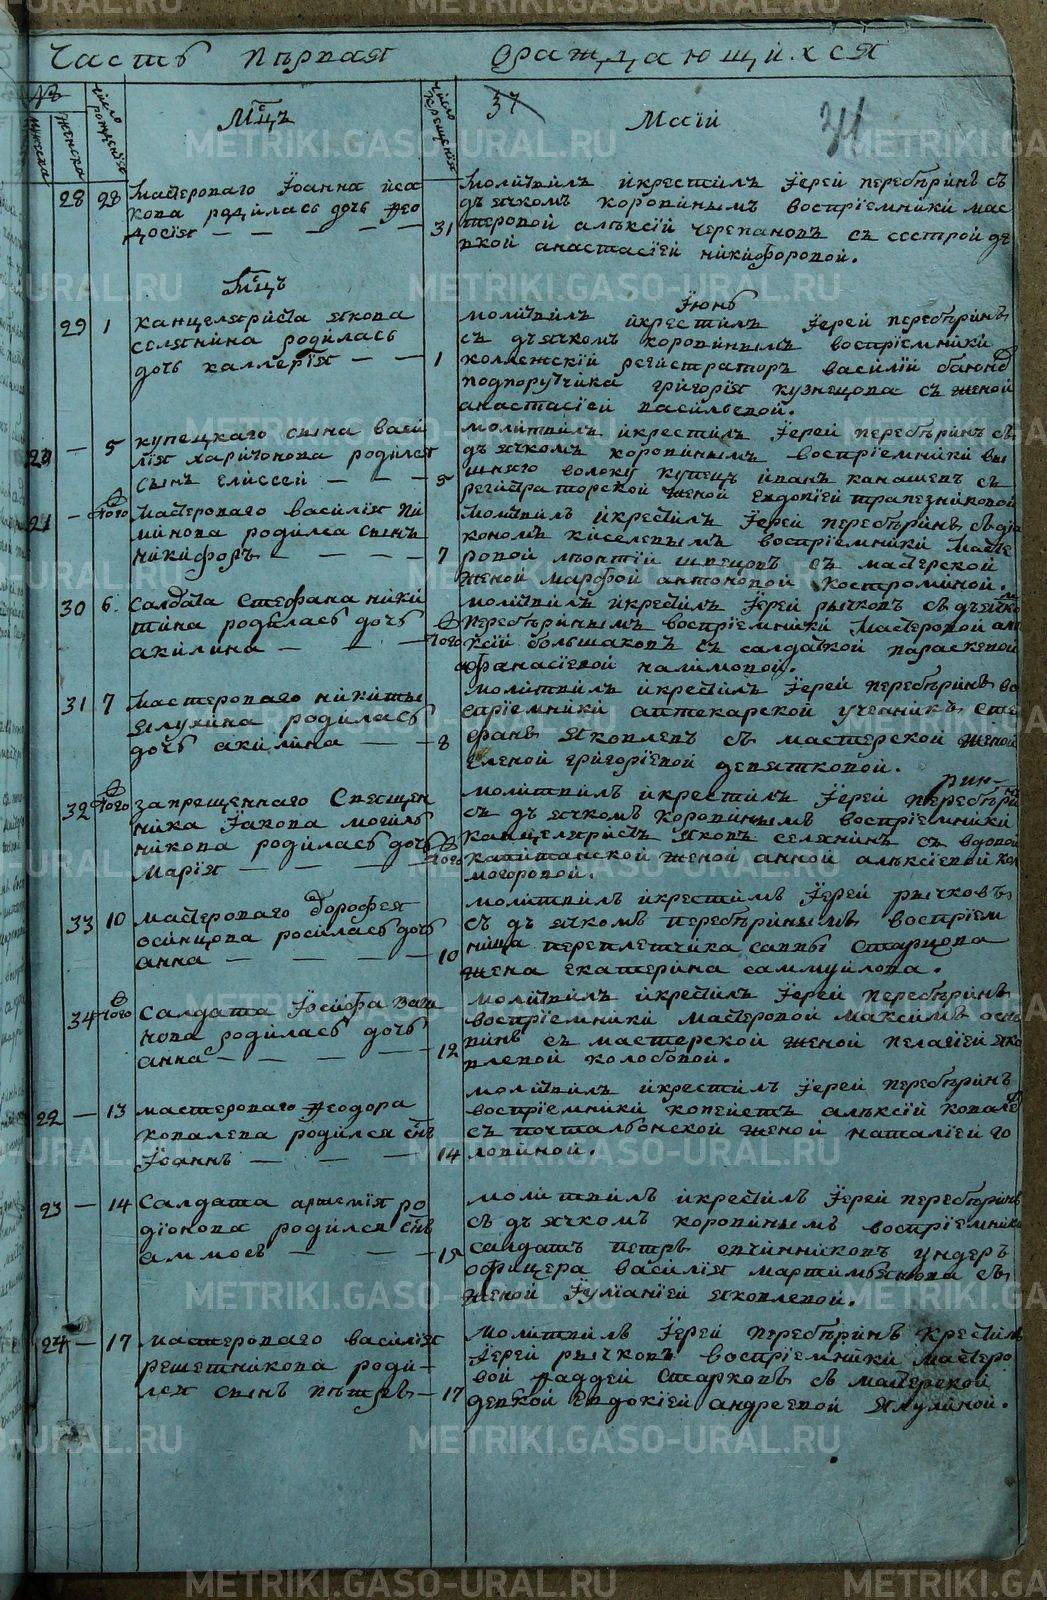 Часть первая о раждающихся
№
мужска
женска
число рождения
Мсцъ
число крещения
37
34
Маій
28 28 мастероваго Їоанна иса
кова родилась дочь Ѳео
досия
31
молитвилъ и крестилъ Їерей перебѣринъ съ
дьячкомъ коровинымъ воспрїемники мас
теровой алѣксїй черепановъ съ сестрой де
вкой анастасїей никифоровой.
Мсцъ
Їюнь
29 1 канцеляриста якова
селянина родилась
дочь каллерїя
1
молитвилъ и крестилъ Їерей перебѣринъ
съ дьячкомъ коровинымъ воспрїемники
коллежский регистраторъ василїй
подпорутчика григорїя кузнецова съ женой
анастасїей васильевой.
20 5 купецкаго сына васи
лїя харитонова родился
сынъ елиссей
5
молитвилъ и крестилъ Їерей перебѣринъ съ
дьячкомъ коровинымъ воспрїемники вы
шняго волоку купецъ иванъ канашевъ съ
регистраторской женой евдокїей трапезниковой
21 того мастероваго василїя пи
минова родился сынъ
никифоръ
7
молитвилъ и крестилъ Їерей перебѣринъ съ дья
кономъ киселевымъ воспрїемники масте
ровой лѣонтїй швецовъ съ мастерской
женой марфой антоновой костроминой.
30 6 салдата Стефана ники
тина родилась дочь
акилина
того
молитвилъ и крестилъ Їерей рычковъ съ дьячко
перебѣринымъ воспрїемники мастеровой алѣ
ксїй большаковъ съ салдаткой параскевой
афанасїевой налимовой.
31 7 мастероваго никиты
ялухина родилась
дочь акилина
8
молитвилъ и крестилъ Їерей перебѣринъ во
спрїемники аптекарской ученикъ сте
фанъ яковлевъ съ мастерской женой
еленой григорїевой девятковой.
32 того запрещеннаго Священ
ника Їакова могиль
никова родилась дочь
Марїя
того
молитвилъ и крестилъ Їерей перебѣринъ
съ дьячкомъ коровинымъ воспрїемники
канцеляристъ яковъ селянинъ съ вдовой
капитанской женой анной алѣксїевой хол
могоровой.
33 10 мастероваго дорофея
осинцова росилась дочь
анна
10
молитвилъ и крестилъ Їерей рычковъ
съ дьячкомъ перебѣринымъ воспрїем
ница переплетчика саввы старцова
жена екатерина саммуилова.
34 того салдата Їосифа ваги
нова родилась дочь
анна
12
молитвилъ и крестилъ Їерей перебѣринъ
воспрїемники мастеровой максимъ оси
винъ съ мастерской женой пелагїей яко
влевой колобовой.
22 13 мастероваго Ѳеодора
ковалева родился снъ
Їоаннъ
14
молитвилъ и крестилъ Їерей перебѣринъ
воспрїемники копеистъ алѣксїй ковале
съ почтальонской женой наталїей го
ловиной.
23 14 Салдата артемїя ро
дїонова родился снъ
аммосъ
15
молитвилъ и крестилъ Їерей перебѣринъ
съ дьячкомъ коровинымъ воспрїемники
салдатъ петръ овчинниковъ ундеръ
офицера василїя мартимьянова съ
женой Їулїанїей яковлевой.
24 17 мастероваго василїя
решетникова роди-
лся сынъ пѣтръ
17
молитвилъ Їерей перебѣринъ крестилъ
Їерей рычковъ воспрїемники мастеро
вой ѳаддей старковъ съ мастерской
девкой евдокїей андреевой ялуниной.